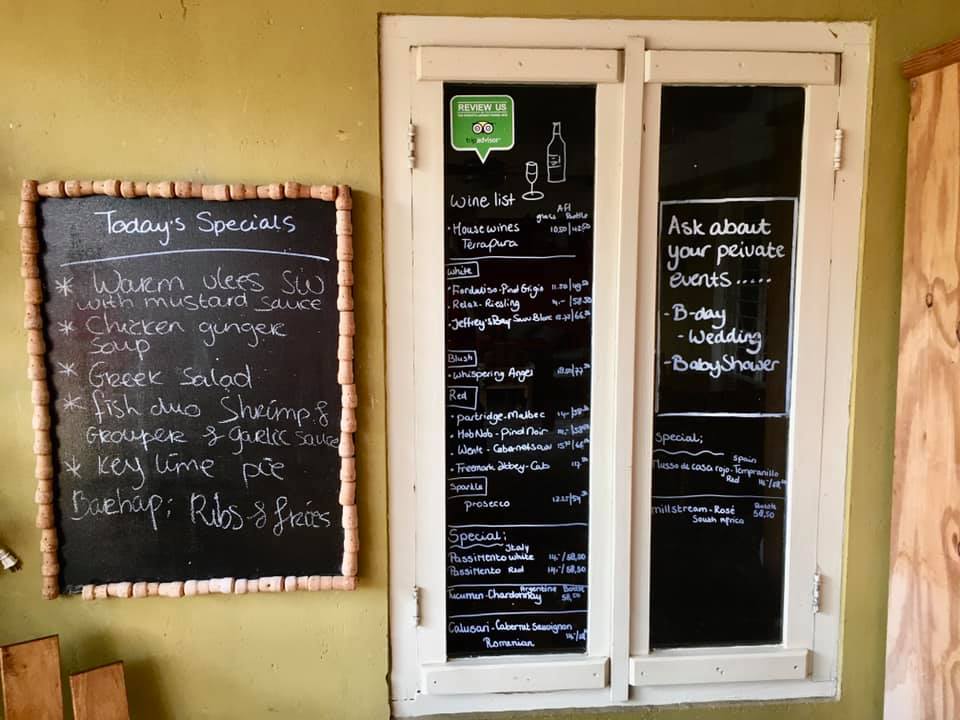 Today's Specials
* Warm vlees Siv
with mustard sauce
* Chicken ginger
soup
* Greek Salad
* fish duo Shrimp &
Grouper & garlic sauce
* Key lime pie
Barhap: Ribs & fries
REVIEW US
tripadvisor
wine list
AFl
glass Bottle
• House wines 10,50/42.50
Terrapura
White
• Pinot Grigio
• Relax - Riesling 14.-/58.50
• Jeffrey's Bay Sauv Blanc
Blush
• Whispering Angel
Red
• partridge - Malbec 14.-/58.50
• HobNob - pinot Noir
• Wente - Cabernet sauv
• Freemark abbey - Cab
Sparkle
prosecco
Special;
Italy
Passimento white 14.-/58,50
Passimento Red 14.-/58,50
Argentine Bottle
Tucumen - Chardonnay 58,50
Calusari - Cabernet Sauvignon
Romanian
Ask about
your private
events.....
- B-day
- Wedding
- Baby Shower
Special;
Spain
Musso de casa rojo - Tempranillo
Red 14.-/58.50
millstream - Rosé Bottle
South Africa 58,50